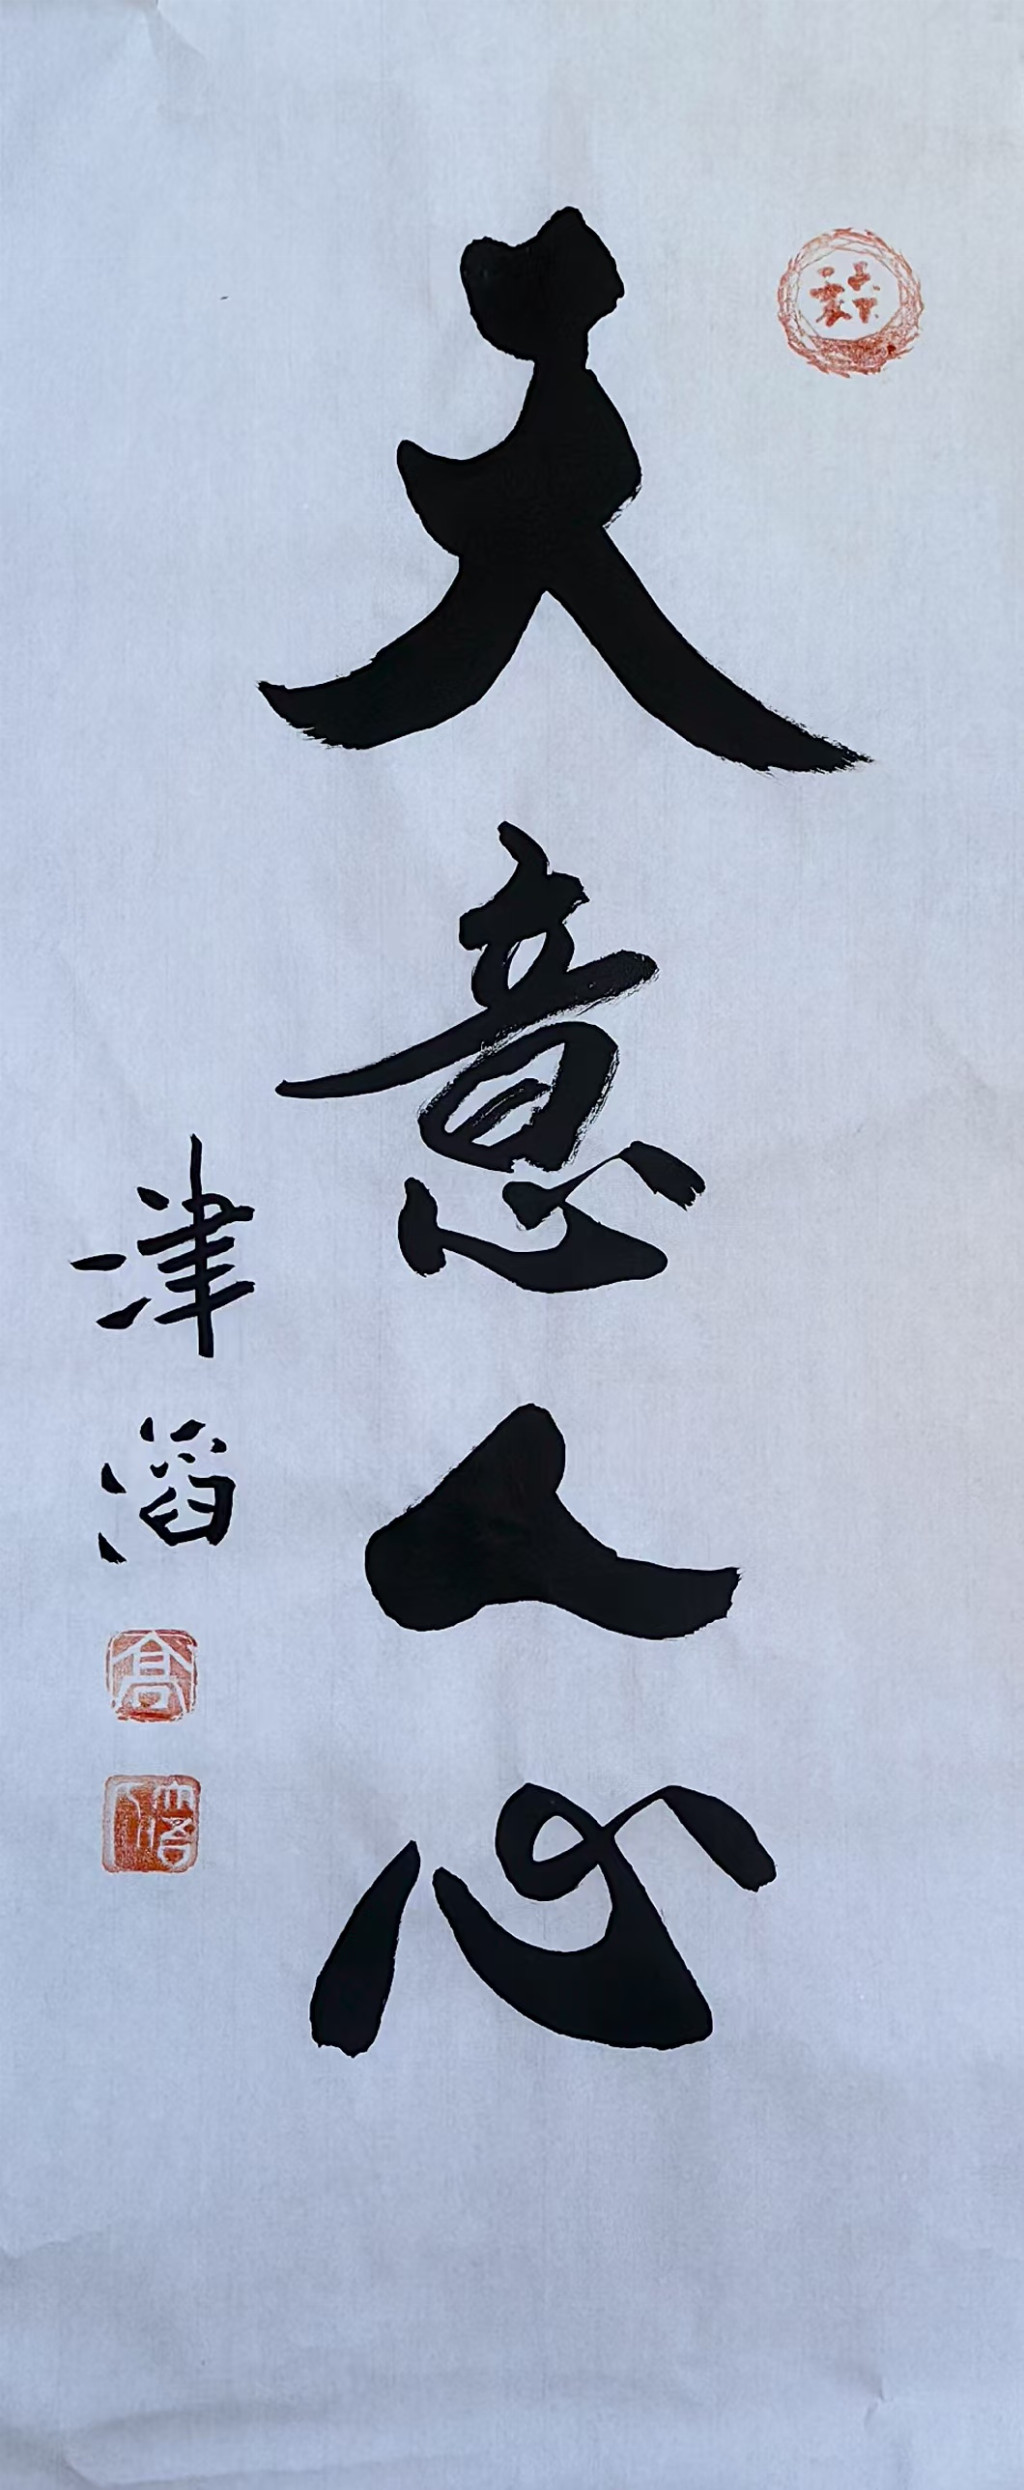 天意人心
津滔
高